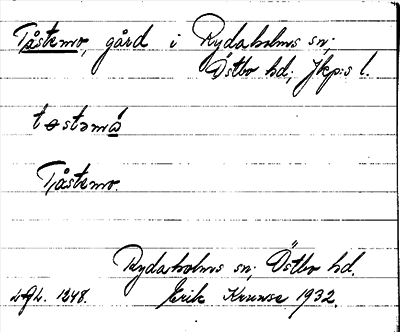 Tåstemo, gård i Rydaholms sn;
Östbo hd; Jkp:s l.
Tåstemo.
Rydaholms sn; Östbo hd.
1248. Erik Kruuse 1932.